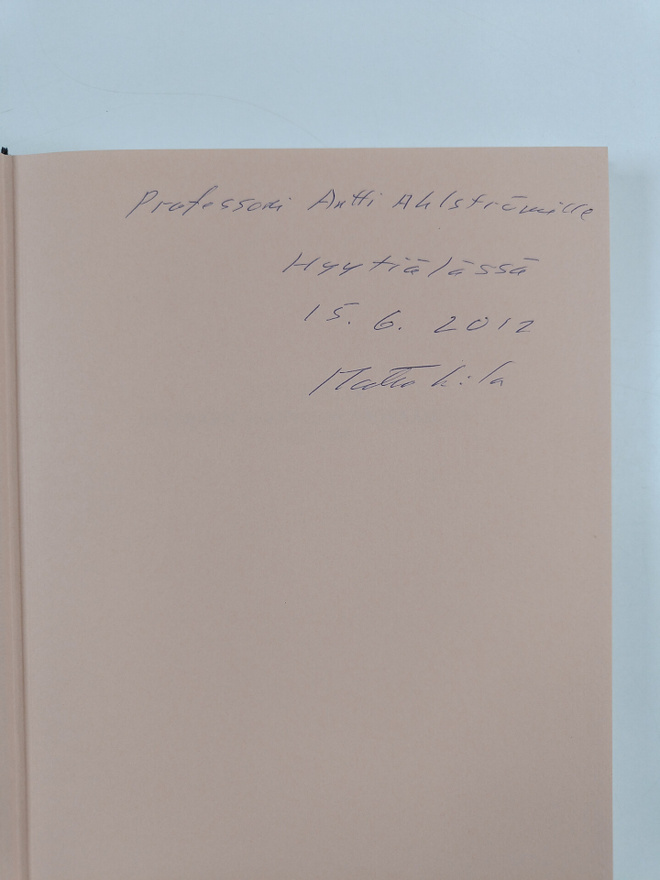 Professori Antti Ahlströmille
Hyytiälässä
15. 6. 2012